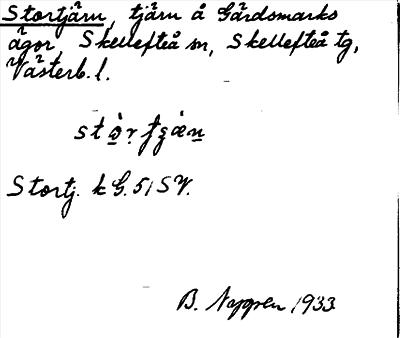 Stortjärn, tjärn å Gärdsmarks
ägor, Skellefteå sn, Skellefteå tg,
Västerb. l.
Stortj. k G. 5 i SV.
B. Nygren 1933